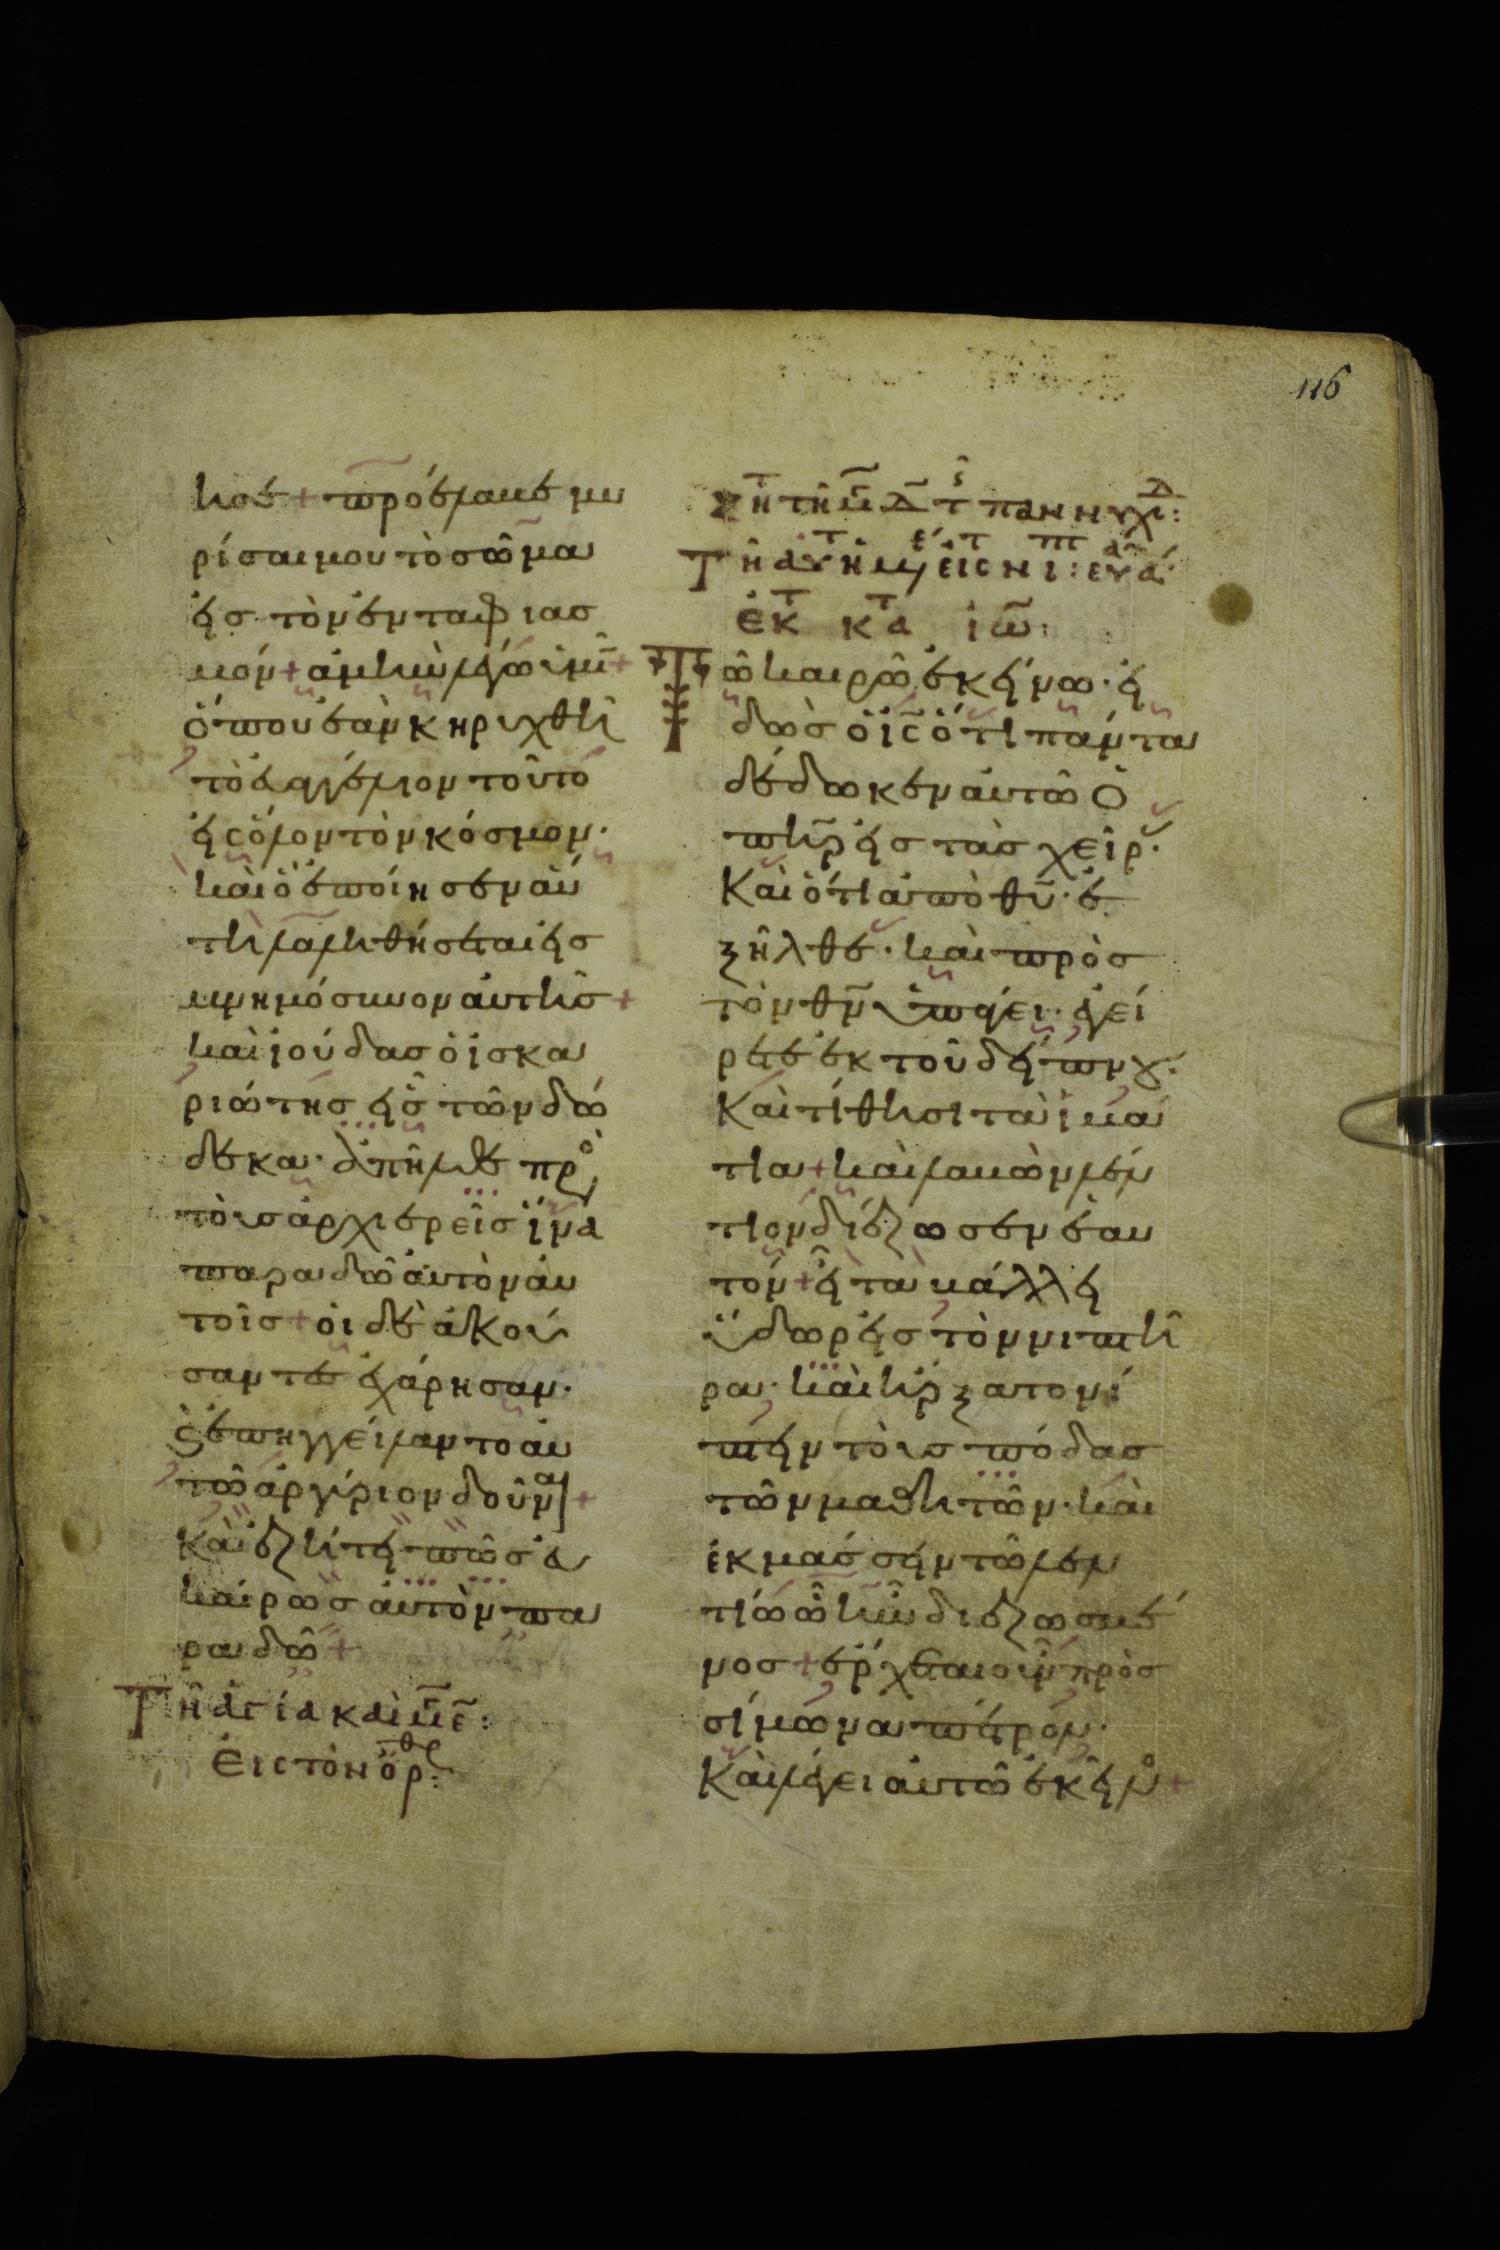 116
ησε + προέλαβε μυ
ρίσαι μου τὸ σῶμα
εἰς τὸν ἐνταφιασ
μόν + ἀμὴν λέγω ὑμῖ +
ὅπου ἐὰν κηρυχθῆ
τὸ εὐαγγέλιον τοῦτο
εἰς ὅλον τὸν κόσμον·
καὶ ὃ ἐποίησεν αὕ
τη λαληθήσεται εἰς
μνημόσυνον αὐτῆς +
καὶ ἰούδας ὁ ἰσκα
ριώτης εἷς τῶν δώ
δεκα· ἀπῆλθε πρὸ
τοὺς ἀρχιερεῖς ἵνα
παραδῶ αὐτὸν αὐ
τοῖς + οἱ δὲ ἀκού
σαντες ἐχάρησαν·
ϗ ἐπηγγείλαντο αὐ
τῶ ἀργύριον δοῦνα +
καὶ ἐζήτει πῶς εὐ
καίρως αὐτὸν πα
ραδῶ +
Τῆ ἁγία καὶ μ ε :
εἰς τὸν ὄρθρ :
Ζητ τῆ μ δ τ παννυχιδ :
Τῆ αὐτῆ μ εἰς τ νιπτ : εὐα α
ἐκ τ κατ ἰω :
Τῶ καιρῶ ἐκείνω· εἰ
δὼς ὁ ις ὅτι πάντα
δέδωκεν αὐτῶ ὁ
πηρ εἰς τὰς χεῖρ·
Καὶ ὅτι ἀπὸ θυ· ἐ
ξῆλθε· καὶ πρὸς
τὸν θν ὑπάγει· ἐγεί
ρεται ἐκ τοῦ δείπνου·
Καὶ τίθησι τὰ ἱμά
τια + καὶ λαβὼν λέν
τιον διέζωσεν ἑαυ
τόν + εἶτα βάλλει
ὕδωρ εἰς τὸν νιπτῆ
ρα· καὶ ἤρξατο νί
πτειν τοὺς πόδας
τῶν μαθητῶν· καὶ
ἐκμάσσειν τῶ λεν
τίω ὧ ἦν διεζωσμέ
νος + ἔρχεται οὖν πρὸς
σίμωνα πέτρον·
Καὶ λέγει αὐτῶ ἐκεῖνο +